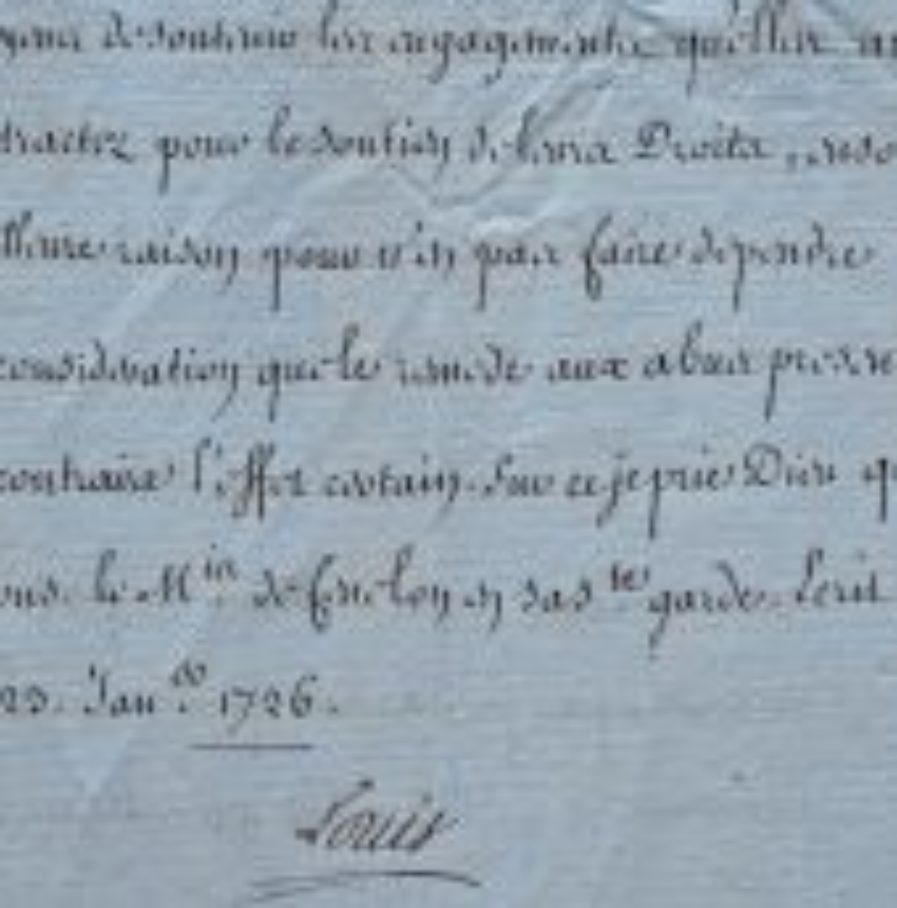 de soutenir les engagements qu'elles
tractez pour le soutien de leurs Droits,
lleure raison pour n'en pas faire dependre
consideration que le remede aux abus
contraire l'effet certain. Sur ce je prie Dieu
ous. le M.is de fenelon en sa s.te garde. Ecrit
Jan.er 1726.
Louis